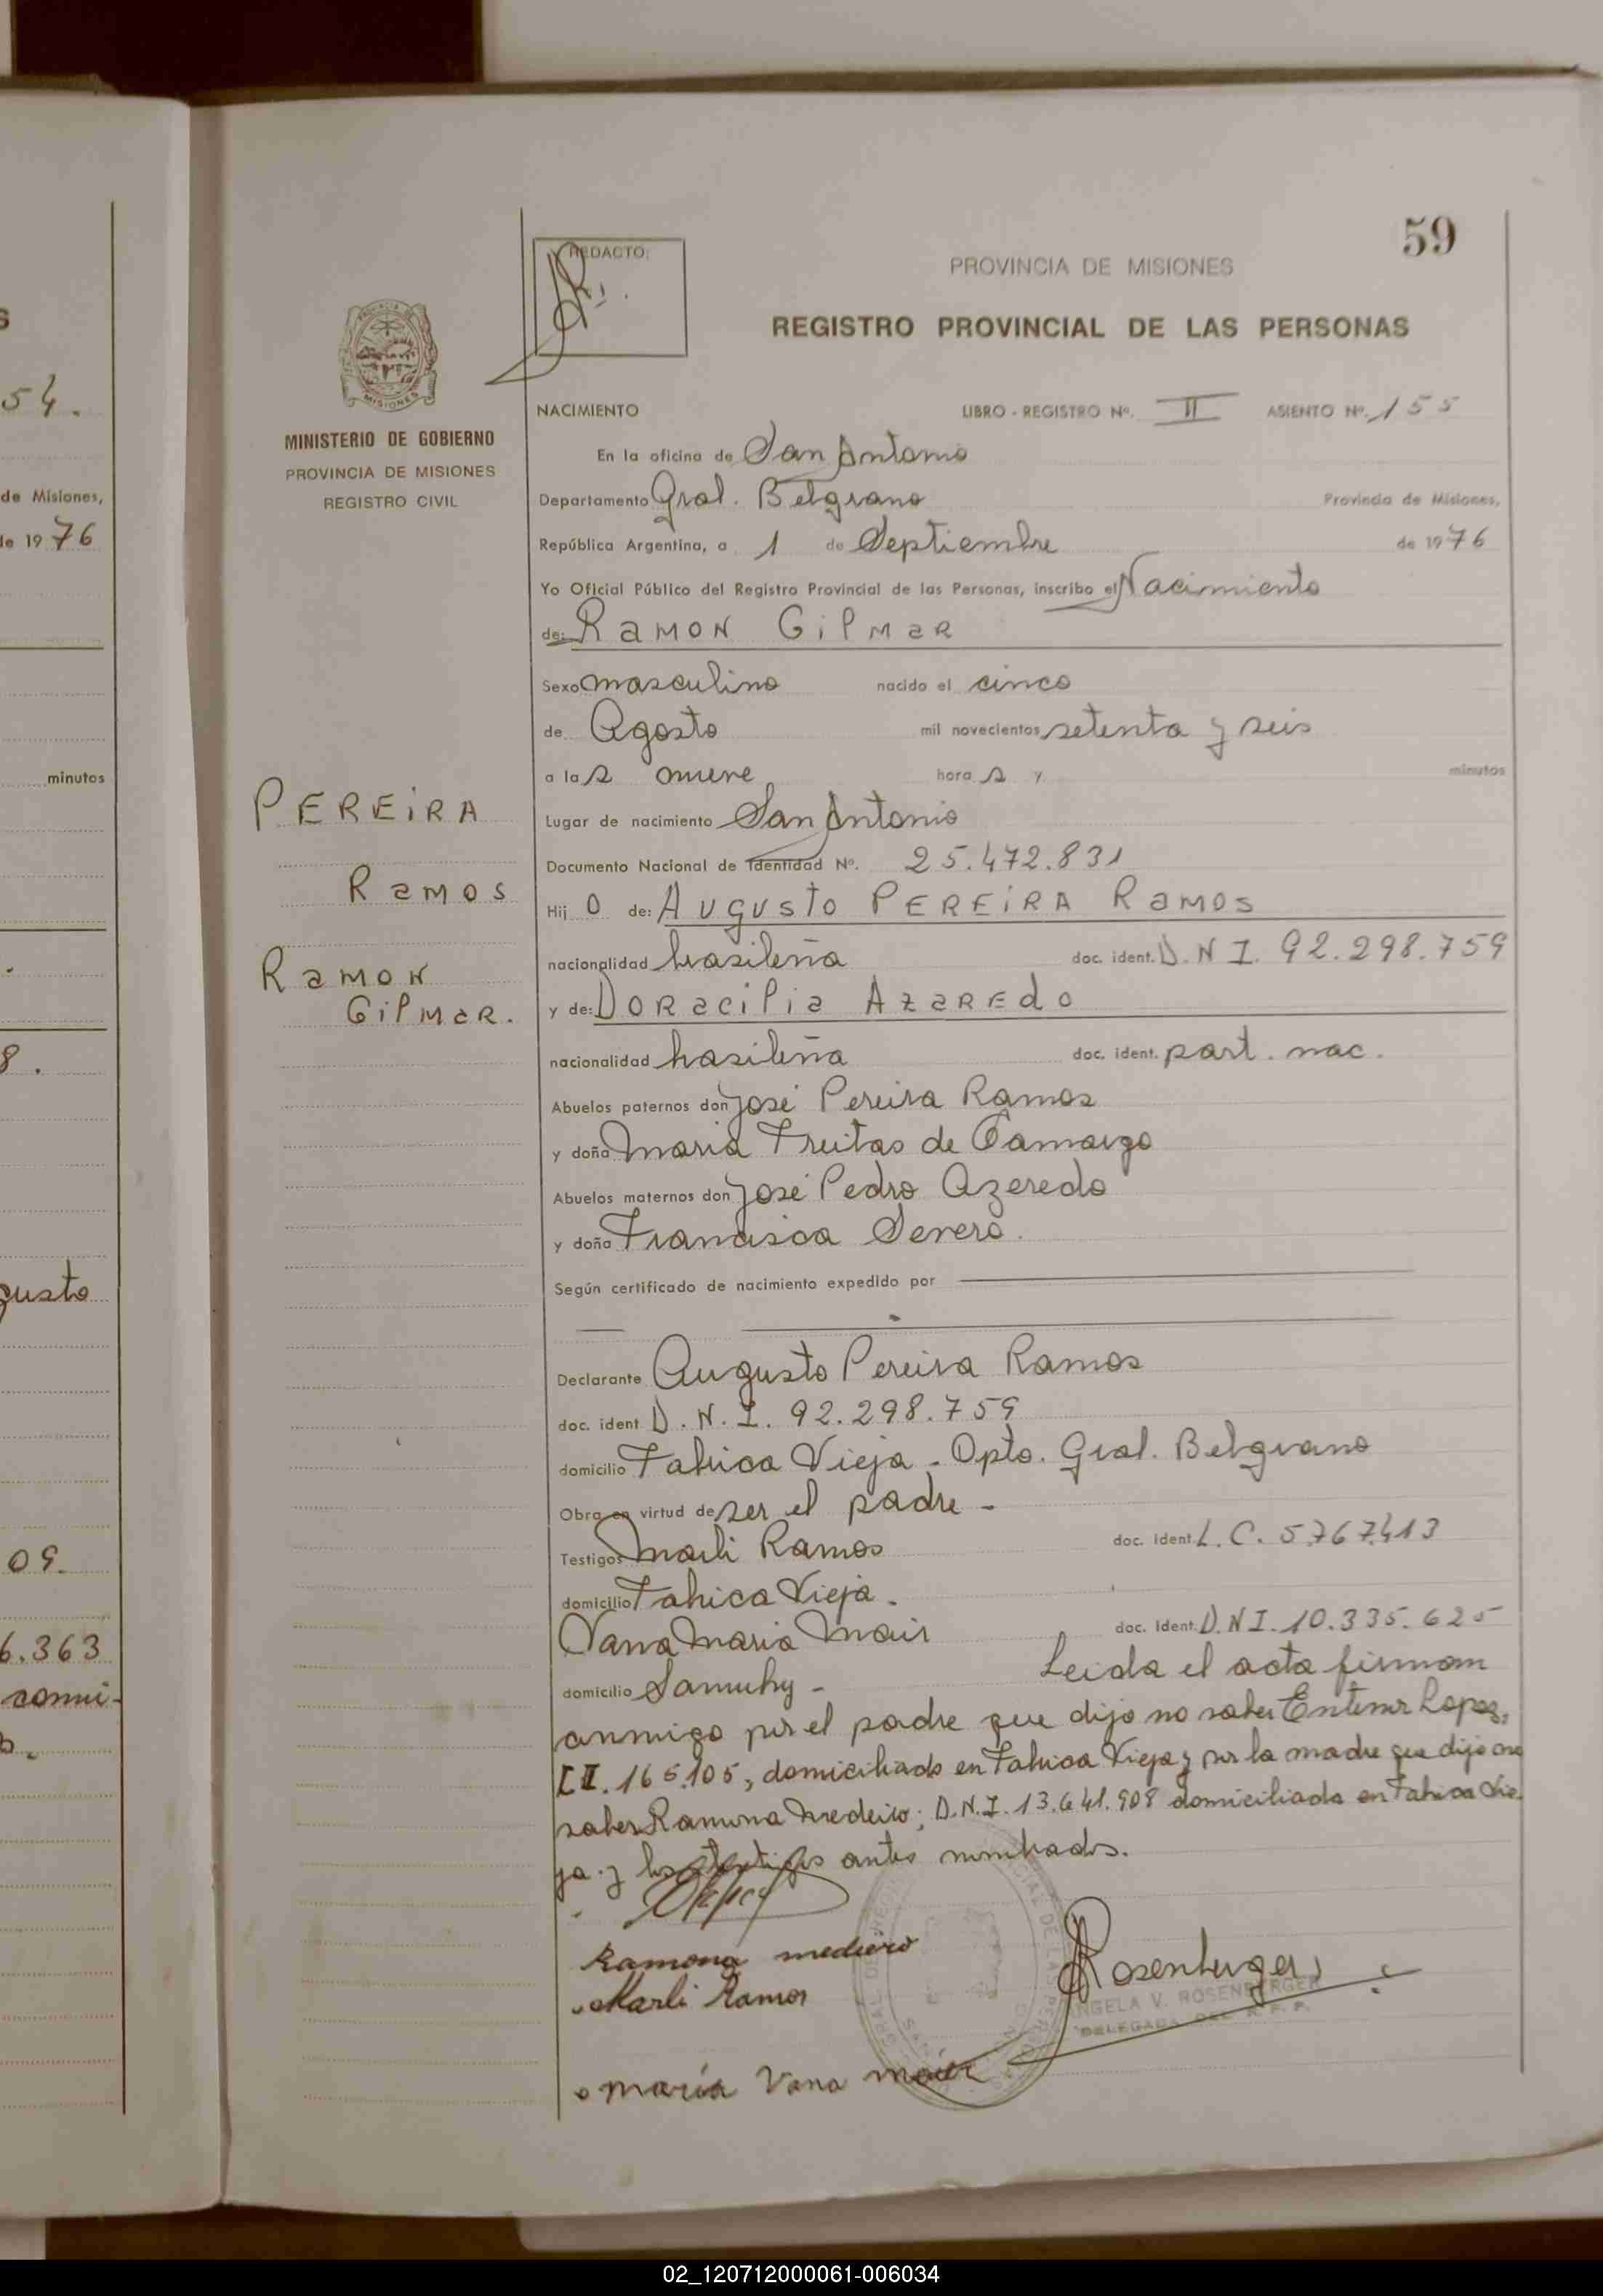 54.
de Misiones,
de 1976
minutos
8.
gusto
09.
6.363
REDACTO:
59
PROVINCIA DE MISIONES
REGISTRO PROVINCIAL DE LAS PERSONAS
MISIONES
MINISTERIO DE GOBIERNO
PROVINCIA DE MISIONES
REGISTRO CIVIL
PEREIRA
RamoS
RamoN
GilMaR.
NACIMIENTO LIBRO - REGISTRO Nº. II ASIENTO Nº. 155
En la oficina de San Antonio
Departamento Gral. Belgrano Provincia de Misiones,
República Argentina, a 1 de Septiembre de 1976
Yo Oficial Público del Registro Provincial de las Personas, inscribo el Nacimiento
de: RaMON GilMaR
Sexo masculino nacido el cinco
de Agosto mil novecientos setenta y seis
a las nueve horas y minutos
Lugar de nacimiento San Antonio
Documento Nacional de Identidad Nº. 25.472.831
Hijo de: AUgUSTO PEREIRA RamoS
nacionalidad brasileña doc. ident. D.N.I. 92.298.759
y de: DORacilia AzaREdo
nacionalidad brasileña doc. ident. part. nac.
Abuelos paternos don José Pereira Ramos
y doña Maria Freitas de Camargo
Abuelos maternos don José Pedro Azeredo
y doña Francisca Severo.
Según certificado de nacimiento expedido por
Declarante Augusto Pereira Ramos
doc. ident. D.N.I. 92.298.759
domicilio Fabrica Vieja - Dpto. Gral. Belgrano
Obra en virtud de ser el padre -
Testigos Marli Ramos doc. ident. L.C. 5.767.413
domicilio Fabrica Vieja -
Vana Maria Mair doc. ident. D.N.I. 10.335.625
domicilio Samuhy - Leida el acta firman
conmigo por el padre que dijo no saber Lopez,
165.105, domiciliado en Fabrica Vieja y por la madre que dijo no
saber Ramona Medeiro; D.N.I. 13.641.908 domiciliada en Fabrica Vie
ja y los testigos antes nombrados.
Ramona medeiro
Marli Ramos
Rosenberger
ANGELA V. ROSENBERGER
DELEGADA DEL R.P.P.
maria Vana maier
02_120712000061-006034